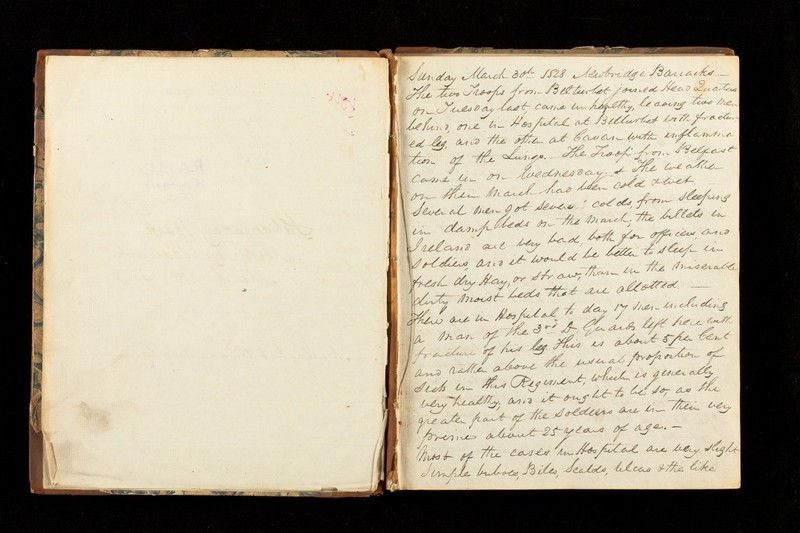 Sunday March 30th 1828 Newbridge Barracks —
The two Troops from Belturbet joined Head Quarters
on Tuesday last, came in healthy, leaving two men
behind, one in Hospital at Belturbet with fractur-
ed leg, and the other at Cavan with inflamma
tion of the Lungs. The Troop from Belfast
came in on Wednesday & The weather
on their March had been cold & wet
Several men got severe colds, from sleeping
in damp beds on the March, the billets in
Ireland are very bad, both for officers and
soldiers, and it would be better to sleep in
fresh dry Hay, or straw, than in the miserable
dirty moist beds that are allotted —
There are in Hospital to day 17 men including
a man of the 3rd D Guards left here with
fracture of his leg This is about 5 per Cent
and rather above the usual proportion of
sick in this Regiment, which is generally
very healthy, and it ought to be so, as the
greater part of the soldiers are in their very
prime about 25 years of age. —
Most of the cases in Hospital are very slight
Simple buboes, Biles, Scalds, Ulcers & the like